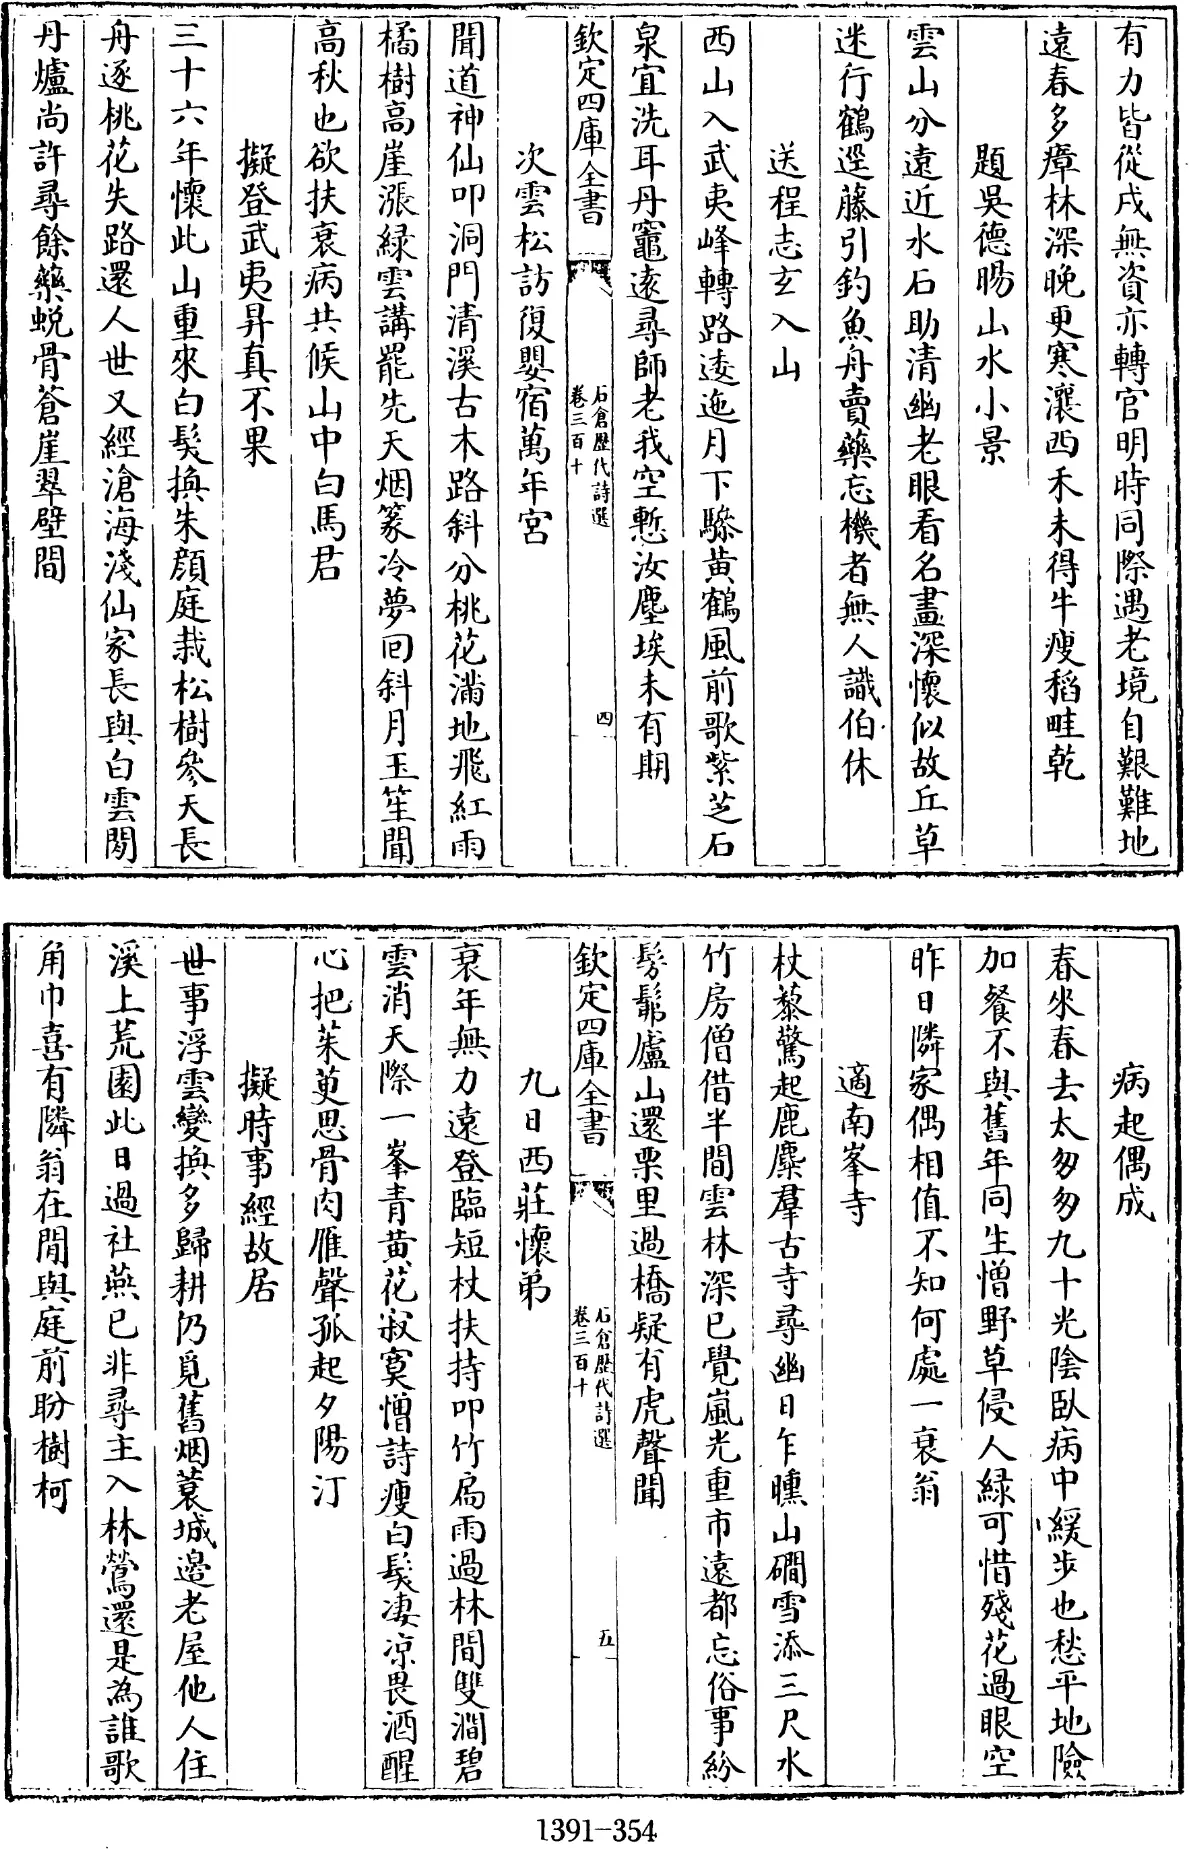 有力皆從戍無資亦轉官明時同際遇老境自艱難地
遠春多瘴林深晚更寒瀼西禾未得牛瘦稻畦乾
題吳德暘山水小景
雲山分遠近水石助清幽老眼看名畫深懷似故丘草
迷行鶴逕藤引釣魚舟賣藥忘機者無人識伯休
送程志玄入山
西山入武夷峰轉路逶迤月下驂黄鶴風前歌紫芝石
泉宜洗耳丹竈遠尋師老我空慙汝塵埃未有期
欽定四庫全書
石倉歷代詩選
卷三百十
四
次雲松訪復嬰宿萬年宮
聞道神仙叩洞門清溪古木路斜分桃花滿地飛紅雨
橘樹高崖漲緑雲講罷先天烟篆冷夢回斜月玉笙聞
高秋也欲扶衰病共候山中白馬君
擬登武夷昇真不果
三十六年懷此山重來白髮換朱顔庭栽松樹參天長
舟逐桃花失路還人世又經滄海淺仙家長與白雲閒
丹爐尚許尋餘藥蜕骨蒼崖翠壁間
病起偶成
春來春去太匆匆九十光陰卧病中緩步也愁平地險
加餐不與舊年同生憎野草侵人緑可惜殘花過眼空
昨日隣家偶相值不知何處一衰翁
適南峯寺
杖藜驚起鹿麋羣古寺尋幽日乍曛山磵雪添三尺水
竹房僧借半間雲林深已覺嵐光重市遠都忘俗事紛
髣髴廬山還栗里過橋疑有虎聲聞
欽定四庫全書
石倉歷代詩選
卷三百十
五
九日西莊懷弟
衰年無力遠登臨短杖扶持叩竹扃雨過林間雙澗碧
雲消天際一峯青黄花寂寞憎詩瘦白髮凄凉畏酒醒
心把茱萸思骨肉雁聲孤起夕陽汀
擬時事經故居
世事浮雲變換多歸耕仍覓舊烟蓑城邉老屋他人住
溪上荒園此日過社燕已非尋主入林鶯還是為誰歌
角巾喜有隣翁在閒與庭前盼樹柯
1391-354